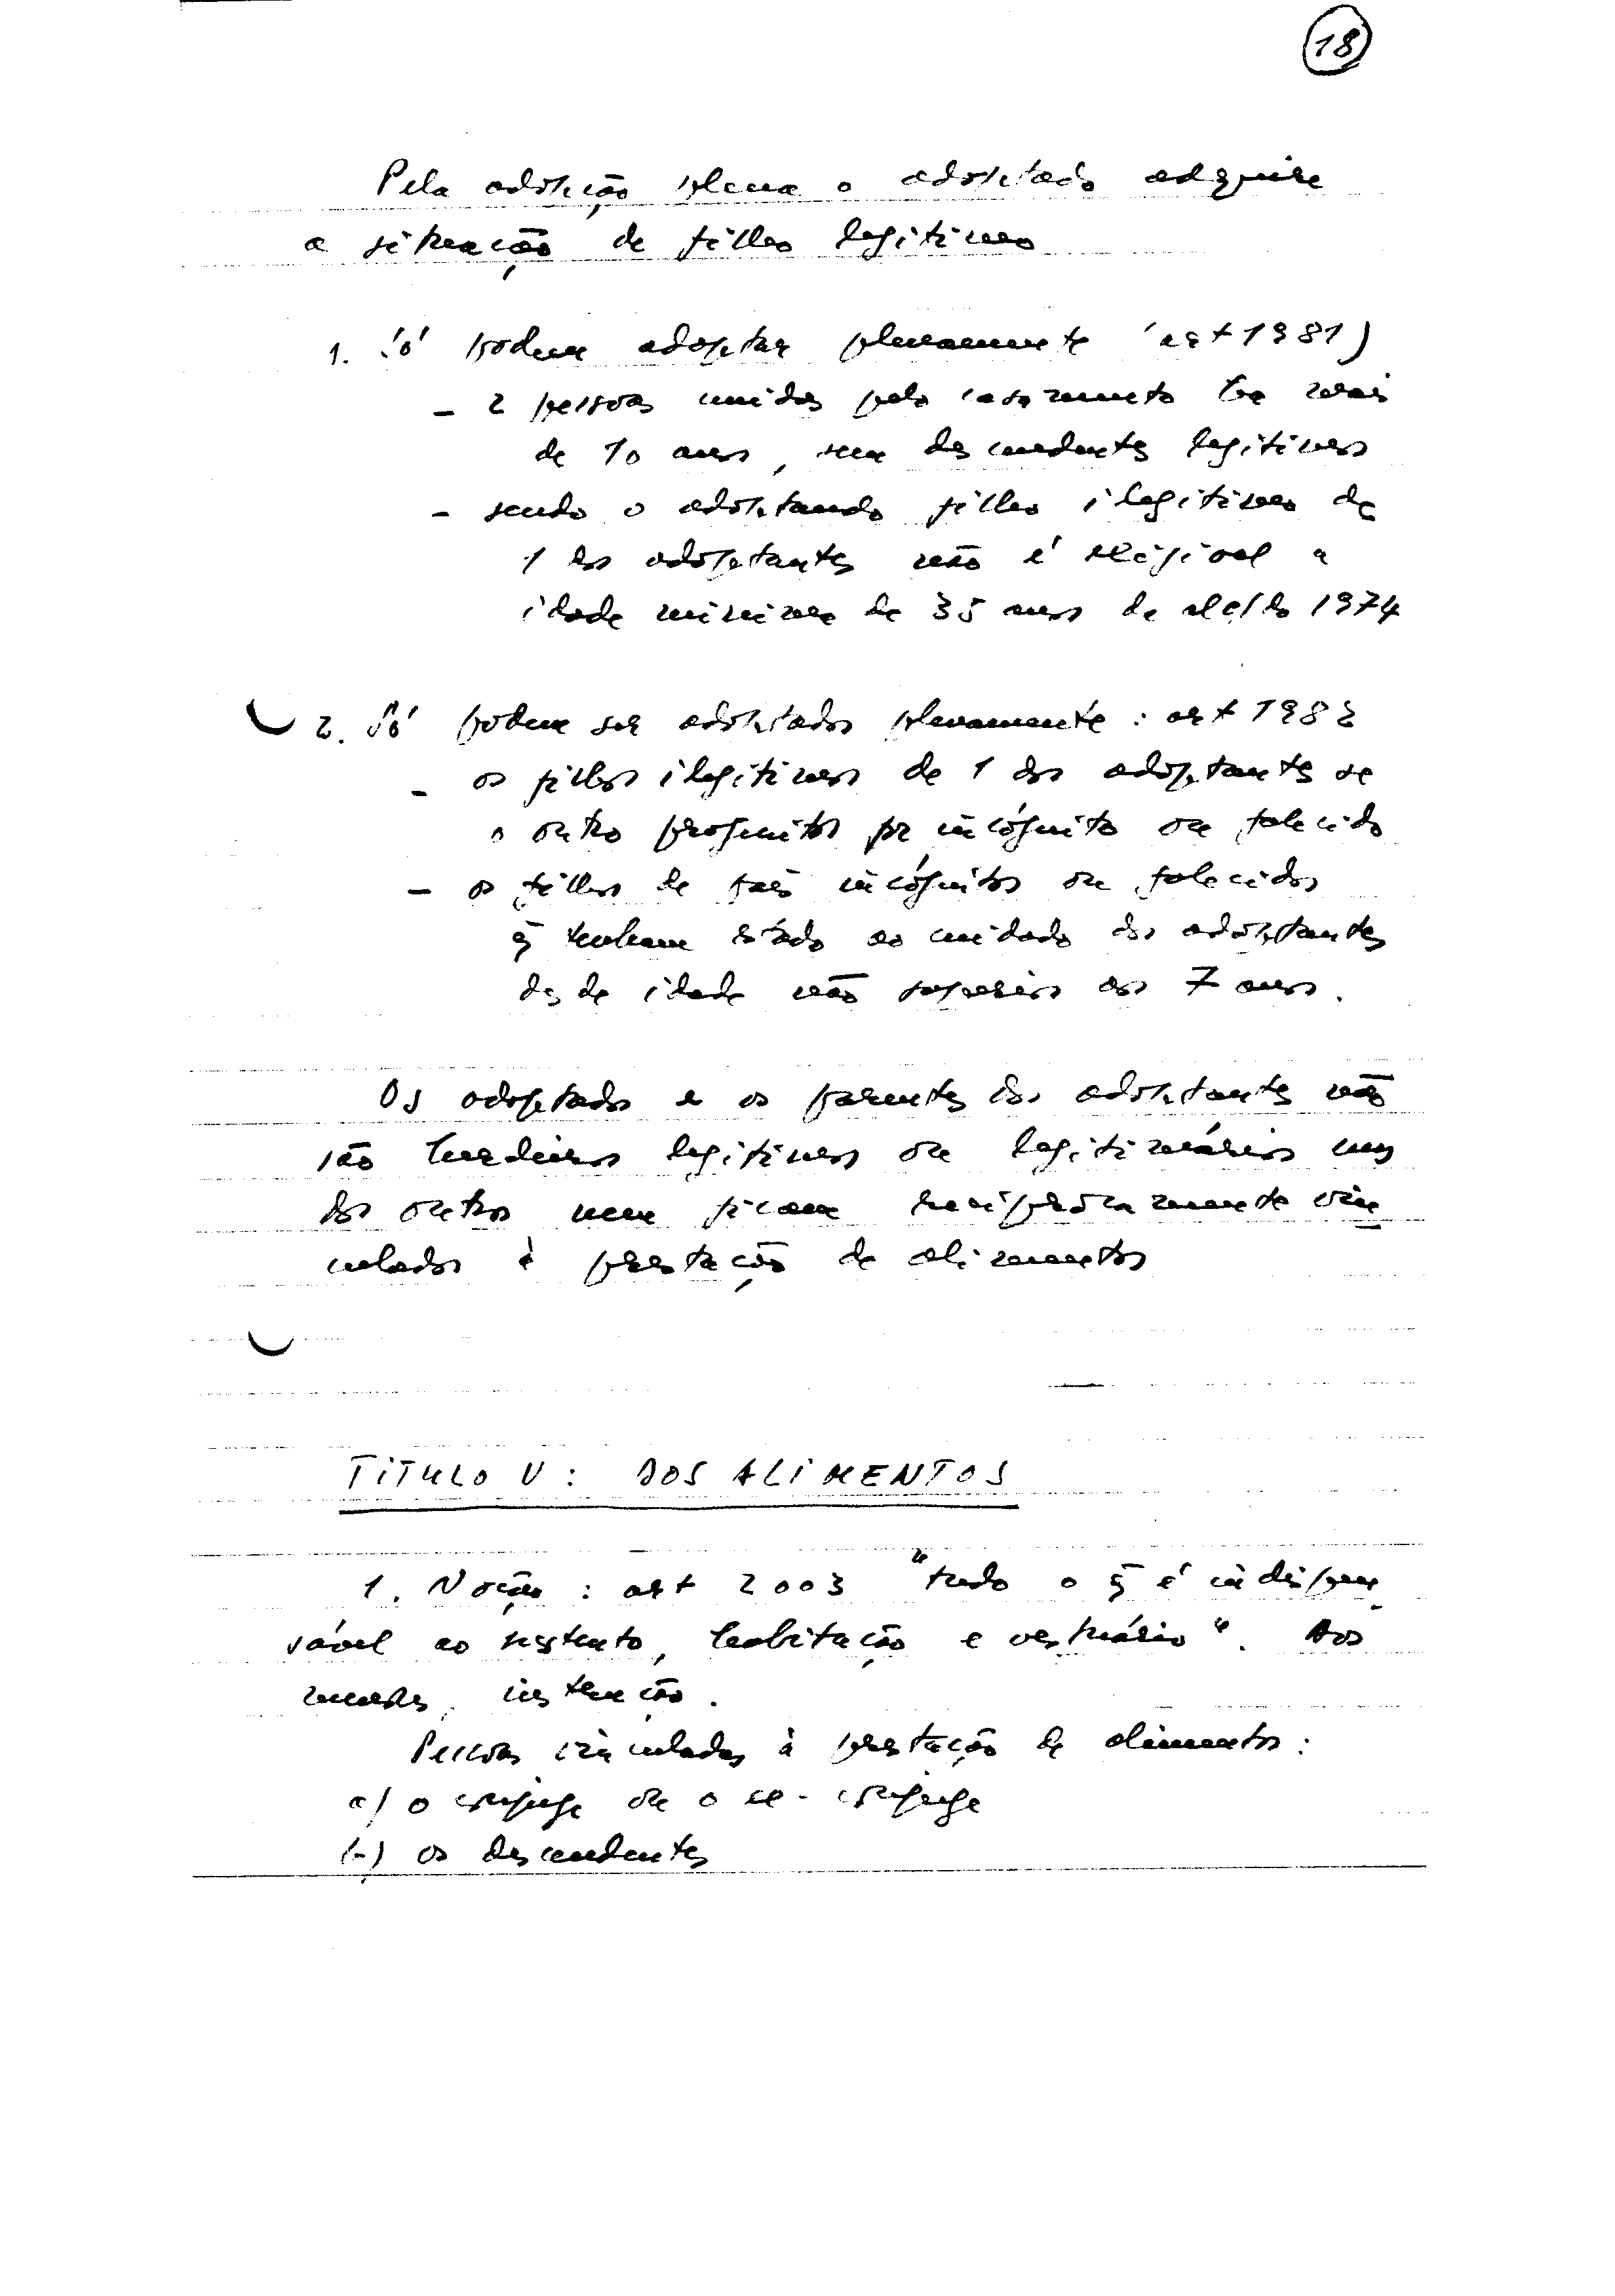 18
Pela adopção plena o adoptado adquire
a situação de filho legítimo
1. Só podem adoptar plenamente (art 1981)
- 2 pessoas unidas pelo casamento há mais
de 10 anos, sem descendentes legítimos
- sendo o adoptando filho ilegítimo de
1 dos adoptantes não é exigível a
idade mínima de 35 anos de do 1974
2. Só podem ser adoptados plenamente : art 1982
- os filhos ilegítimos de 1 dos adoptantes se
o outro progenitor for incógnito ou falecido
- os filhos de pais incógnitos ou falecidos
q̃ tenham estado ao cuidado dos adoptantes
desde idade não superior aos 7 anos.
Os adoptados e os parentes dos adoptantes não
são herdeiros legítimos ou legitimários uns
dos outros nem ficam reciprocamente vin
culados à prestação de alimentos
TITULO V : DOS ALIMENTOS
1. Noção : art 2003 "tudo o q̃ é indispen
sável ao sustento, habitação e vestuário". Aos
menores, instrução.
Pessoas vinculadas à prestação de alimentos :
a) o cônjuge ou o ex-cônjuge
b) os descendentes